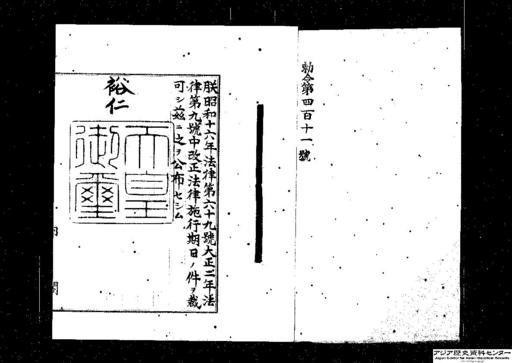 勅令第四百十一號
朕昭和十六年法律第六十九號大正二年法
律第九號中改正法律施行期日ノ件ヲ裁
可シ茲ニ之ヲ公布セシム
裕仁
天皇
御璽
内閣
アジア歴史資料センター
Japan Center for Asian Historical Records